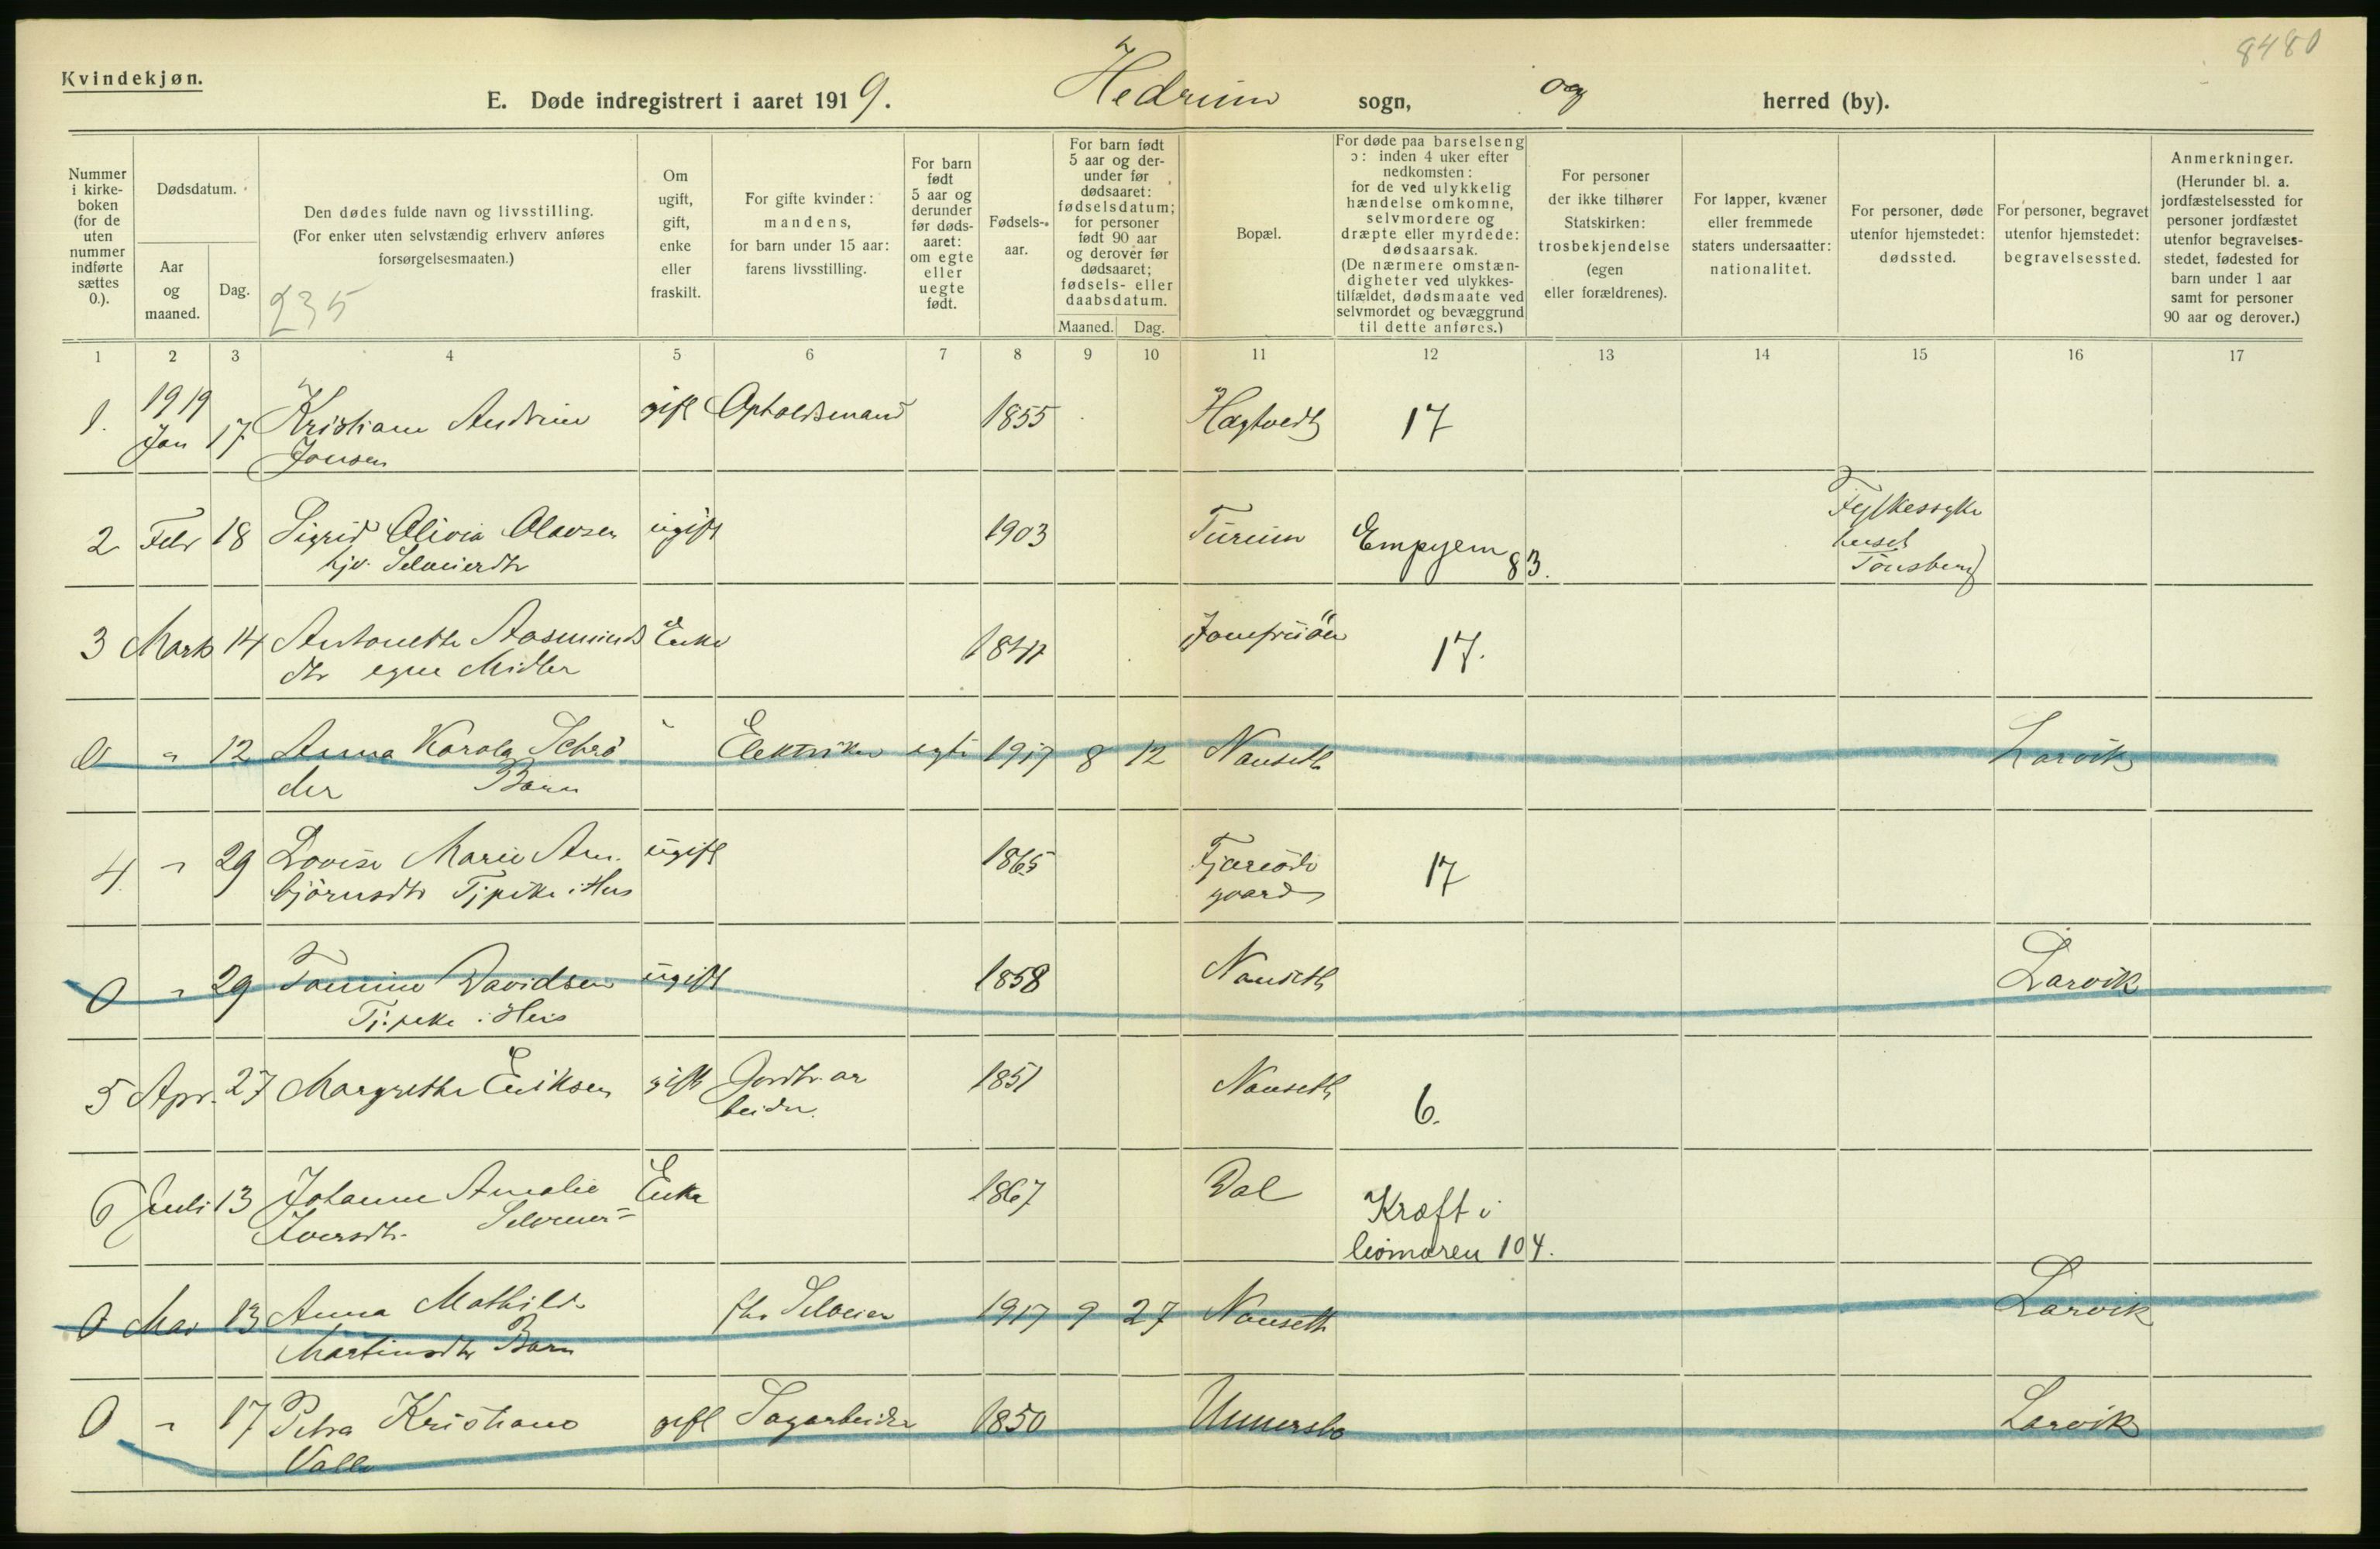 8480
Kvindekjøn.
E. Døde indregistrert i aaret 1919. Hedrum sogn, og herred (by).
Nummer i kirkeboken (for de uten nummer indførte sættes 0.).
Dødsdatum.
Aar og maaned.
Dag.
Den dødes fulde navn og livsstilling.
(For enker uten selvstændig erhverv anføres
forsørgelsesmaaten.)
235
Om ugift, gift, enke eller fraskilt.
For gifte kvinder: mandens, for barn under 15 aar: farens livsstilling.
For barn født 5 aar og derunder før dødsaaret: om egte eller uegte født.
Fødselsaar.
For barn født 5 aar og derunder før dødsaaret: fødselsdatum; for personer født 90 aar og derover før dødsaaret; fødsels- eller daabsdatum.
Maaned. Dag.
Bopæl.
For døde paa barselseng ɔ: inden 4 uker efter nedkomsten: for de ved ulykkelig hændelse omkomne, selvmordere og dræpte eller myrdede: dødsaarsak. (De nærmere omstændigheter ved ulykkestilfældet, dødsmaate ved selvmordet og bevæggrund til dette anføres.)
For personer der ikke tilhører Statskirken: trosbekjendelse (egen eller forældrenes).
For lapper, kvæner eller fremmede staters undersaatter: nationalitet.
For personer, døde utenfor hjemstedet: dødssted.
For personer, begravet utenfor hjemstedet: begravelsessted.
Anmerkninger. (Herunder bl. a. jordfæstelsessted for personer jordfæstet utenfor begravelsesstedet, fødested for barn under 1 aar samt for personer 90 aar og derover.)
1 2 3 4 5 6 7 8 9 10 11 12 13 14 15 16 17
1919
1. Jan 17 Kristiane Andrine gift Opholdsmand 1855 Hagtvedt 17
Jonsen
2 Febr 18 Sigrid Olivia Olavsen ugift 1903 Turum Empyem 83. Fylkessyke
hj. Selveierdtr huset
Tønsberg
3 Marts 14 Antonette Aasmunds Enke 1841 Jomfruöen 17.
dtr egne Midler
0 " 12 Anna Karola Schrö Elektriker egte 1917 8 12 Nanseth Larvik
der Barn
4 " 29 Lovise Marie Arn. ugift 1865 17
björnsdtr Tjpike i Hus gaard
0 " 29 Davidsen ugift 1858 Nanseth Larvik
Tj.peke i Hus
5 Apr. 27 Margrethe Eriksen gift Jordbr. ar 1851 Nanseth 6.
beider.
6 Juli 13 Johanne Amalie Enke 1867 Dal Kræft i
Iversdtr. livmoren 104.
0 Mai 13 Anna Mathilde fhv Selveier 1917 9 27 Nanseth Larvik
Martinsdtr Barn
0 " 17 Petra Kristiane gift Sagarbeider 1850 Unnersbo Larvik
Valle